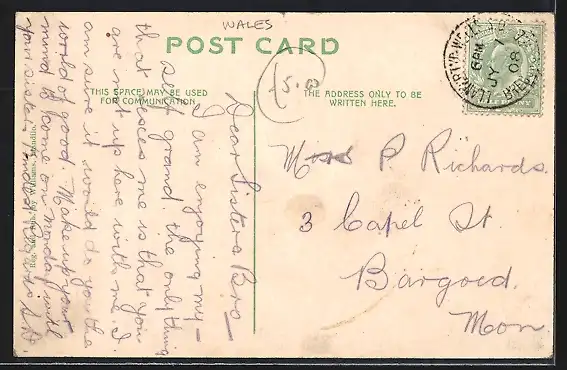 WALES
POST CARD
THIS SPACE MAY BE USED
FOR COMMUNICATION
THE ADDRESS ONLY TO BE
WRITTEN HERE.
5.0
LLANDRINDOD WELLS
5 PM
JY
08
Dear Sister & Bro
I am enjoying my-
self grand. the only thing
that vexes me is that you
are not up here with me. I
am sure it would do you the
world of good. Make up your
mind & come on Monday with
your sister
P Richards
3 Capel St
Bargoed
Mon